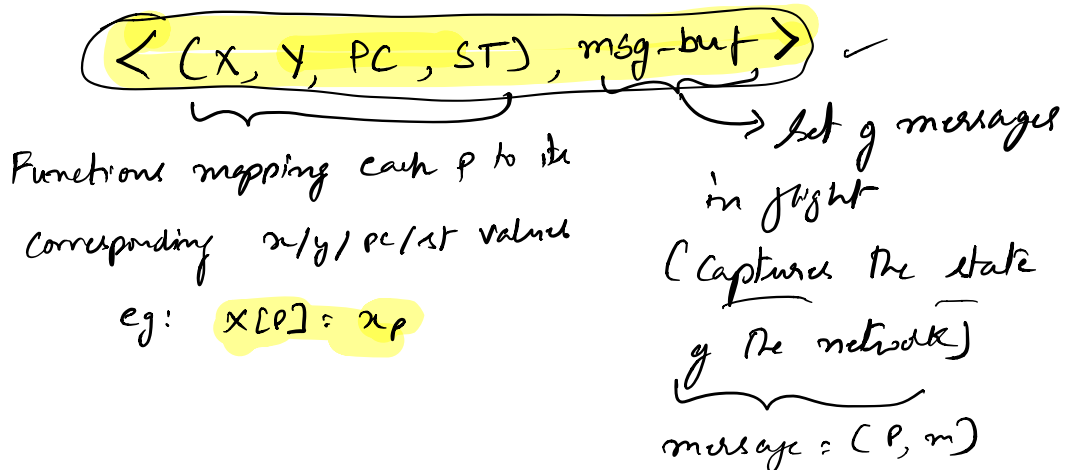 < (X, Y, PC, ST), msg-buf >
Functions mapping each p to its
corresponding x/y/pc/st values
eg: X[P] = xp
set of messages
in flight
(captures the state
of the network)
message = (P, m)